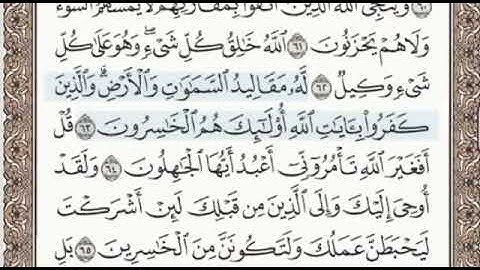 وَيُنَجِّى ٱللَّهُ ٱلَّذِينَ ٱتَّقَوْا۟ بِمَفَازَتِهِمْ لَا يَمَسُّهُمُ ٱلسُّوٓءُ
وَلَا هُمْ يَحْزَنُونَ ٦١ ٱللَّهُ خَٰلِقُ كُلِّ شَىْءٍ ۖ وَهُوَ عَلَىٰ كُلِّ
شَىْءٍ وَكِيلٌ ٦٢ لَّهُۥ مَقَالِيدُ ٱلسَّمَٰوَٰتِ وَٱلْأَرْضِ ۗ وَٱلَّذِينَ
كَفَرُوا۟ بِـَٔايَٰتِ ٱللَّهِ أُو۟لَٰٓئِكَ هُمُ ٱلْخَٰسِرُونَ ٦٣ قُلْ
أَفَغَيْرَ ٱللَّهِ تَأْمُرُوٓنِّىٓ أَعْبُدُ أَيُّهَا ٱلْجَٰهِلُونَ ٦٤ وَلَقَدْ
أُوحِىَ إِلَيْكَ وَإِلَى ٱلَّذِينَ مِن قَبْلِكَ لَئِنْ أَشْرَكْتَ
لَيَحْبَطَنَّ عَمَلُكَ وَلَتَكُونَنَّ مِنَ ٱلْخَٰسِرِينَ ٦٥ بَلِ